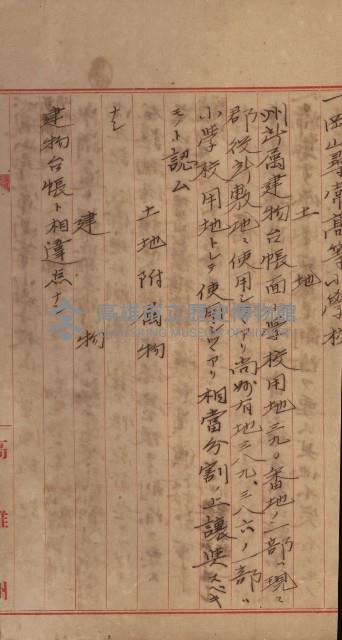 一岡山尋常高等小學校
土地
州所屬建物台帳面學校用地三九〇番地ノ一部ハ現ニ
郡役所敷地ニ使用シアリ尚州有地三八九、三八六ノ一部ハ
小學校用地トシテ使用シツヽアリ相當分割ノ上讓與スベキ
モノト認ム
土地附屬物
ナシ
建物
建物台帳ト相違点ナシ
高雄州
高雄市立歷史博物館
KAOHSIUNG MUSEUM OF HISTORY